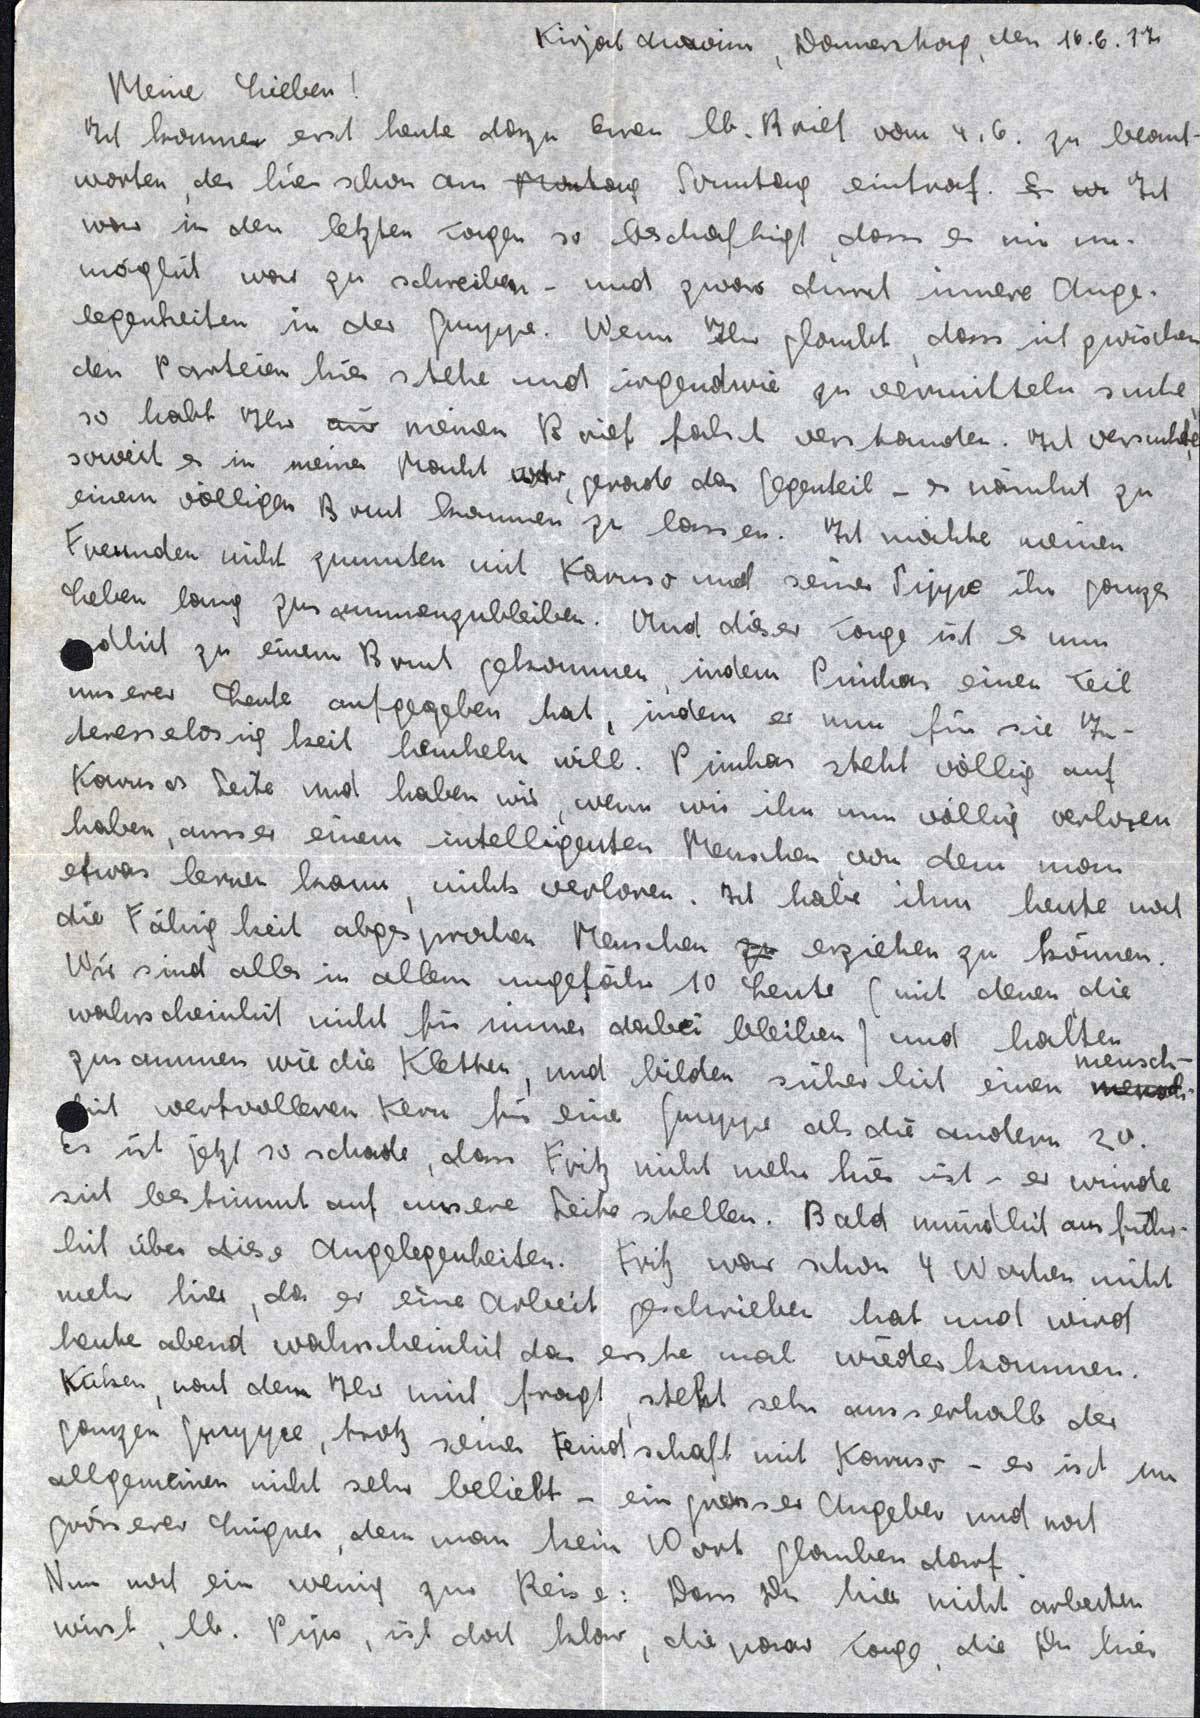 Kirjat Anavim, Donnerstag, den 16.6.
Meine Lieben!
Ich komme erst heute dazu Euren lb. Brief vom 4.6. zu beant-
worten, der hier schon am Montag Sonntag eintraf. Ich
war in den letzten Tagen so beschäftigt, dass es mir un-
möglich war zu schreiben - und zwar durch innere Ange-
legenheiten in der Gruppe. Wenn Ihr glaubt, dass ich zwischen
den Parteien hier stehe und irgendwie zu vermitteln suche,
so habt Ihr meinen Brief falsch verstanden. Ich versuchte,
soweit es in meiner Macht war, gerade das Gegenteil - es nämlich zu
einem völligen Bruch kommen zu lassen. Ich möchte meinen
Freunden nicht zumuten mit Karuso und seiner Sippe ihr ganzes
Leben lang zusammenzubleiben. Und dieser Tage ist es nun
endlich zu einem Bruch gekommen, indem Pinchas einen Teil
unserer Leute aufgegeben hat, indem er nun für sie In-
teresselosigkeit heucheln will. Pinchas steht völlig auf
Karusos Seite und haben wir, wenn wir ihn nun völlig verloren
haben, ausser einem intelligenten Menschen, von dem man
etwas lernen kann, nichts verloren. Ich habe ihm heute noch
die Fähigkeit abgesprochen Menschen zu erziehen zu können.
Wir sind alles in allem ungefähr 10 Leute (mit denen die
wahrscheinlich nicht für immer dabei bleiben) und halten
zusammen wie die Kletten, und bilden sicherlich einen mensch-
lich wertvolleren Kern für eine Gruppe als die andern 20.
Es ist jetzt so schade, dass Fritz nicht mehr hier ist - er würde
sich bestimmt auf unsere Seite stellen. Bald mündlich ausführ-
lich über diese Angelegenheiten. Fritz war schon 4 Wochen nicht
mehr hier, da er eine Arbeit geschrieben hat und wird
heute abend wahrscheinlich das erste mal wiederkommen.
nach dem Ihr mich fragt, steht sehr ausserhalb der
ganzen Gruppe, trotz seiner Feindschaft mit Karuso - er ist im
allgemeinen nicht sehr beliebt - ein grosser Angeber und noch
grösserer Lügner, dem man kein Wort glauben darf.
Nun noch ein wenig zur Reise: Dass Du hier nicht arbeiten
wirst, lb. Pips, ist doch klar, die paar Tage, die Du hier